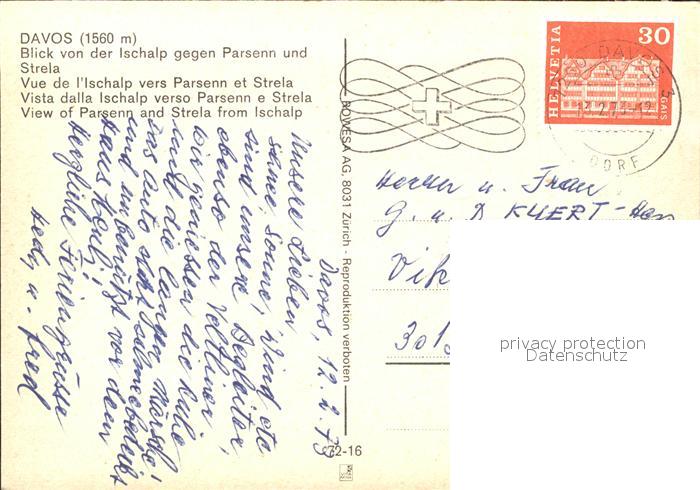 DAVOS (1560 m)
Blick von der Ischalp gegen Parsenn und
Strela
Vue de l'Ischalp vers Parsenn et Strela
Vista dalla Ischalp verso Parsenn e Strela
View of Parsenn and Strela from Ischalp
Davos, 12.2.73
Unsere Lieben
Sonne, Wind etc
sind unsere Begleiter,
ebenso der Veltliner
Wir geniessen die Ruhe
und die langen Märsche,
das Auto steht schneebedeckt
und unbenützt vor dem
Haus
Herzliche Feriengrüsse
Hedy u. Fred
BOWESA AG, 8031 Zürich - Reproduktion verboten
72-16
HELVETIA
30
GAIS
DAVOS
DORF
Herrn u. Frau
G. u. D KUERT-
Vik
301
privacy protection
Datenschutz